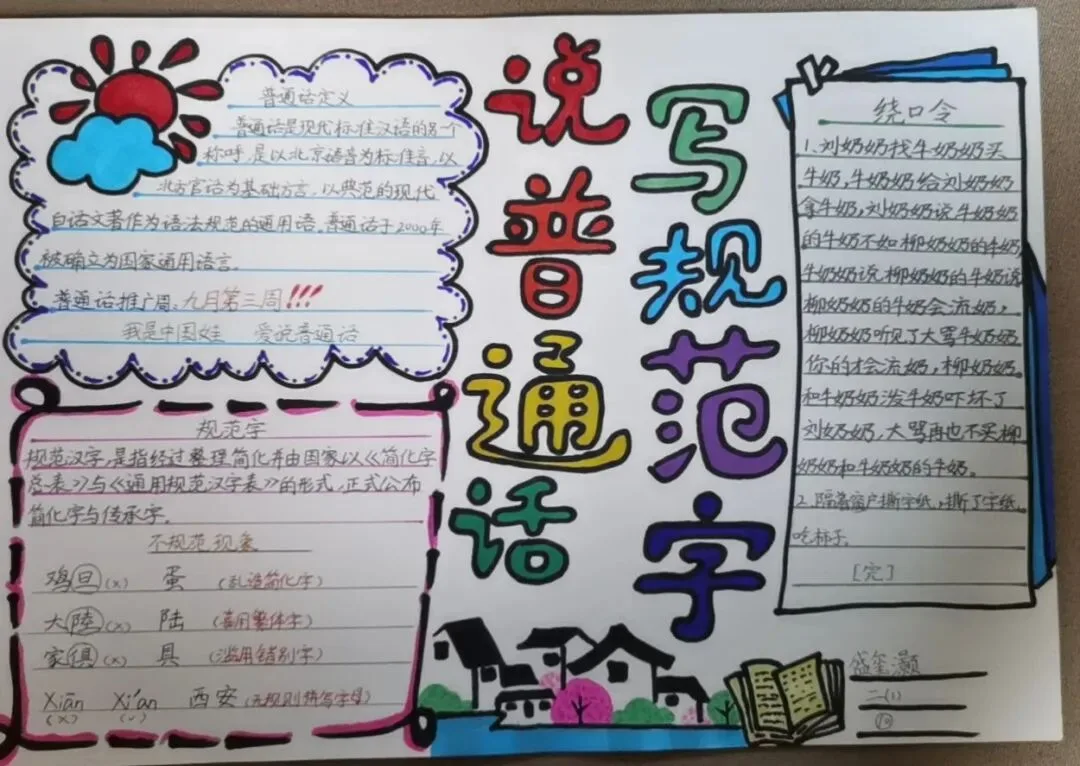 普通话定义
普通话是现代标准汉语的另一个
称呼，是以北京语音为标准音，以
北方官话为基础方言，以典范的现代
白话文著作为语法规范的通用语。普通话于2000年
被确立为国家通用语言。
普通话推广周：九月第三周!!!
我是中国娃 爱说普通话
规范字
规范汉字，是指经过整理简化并由国家以《简化字
总表》与《通用规范汉字表》的形式，正式公布
简化字与传承字。
不规范现象
鸡旦(×) 蛋 (乱造简化字)
大陸(×) 陆 (喜用繁体字)
家俱(×) 具 (滥用错别字)
Xiān Xī'ān 西安 (无规则拼写字母)
(×) (√)
说普通话
写规范字
绕口令
1、刘奶奶找牛奶奶买
牛奶，牛奶奶给刘奶奶
拿牛奶，刘奶奶说牛奶奶
的牛奶不如柳奶奶的牛奶，
牛奶奶说柳奶奶的牛奶说
柳奶奶的牛奶会流奶，
柳奶奶听见了大骂牛奶奶
你的才会流奶，柳奶奶。
和牛奶奶泼牛奶吓坏了
刘奶奶，大骂再也不买柳
奶奶和牛奶奶的牛奶。
2、隔着窗户撕字纸，撕了字纸。
吃柿子。
[完]
盛玺灏
二(1)